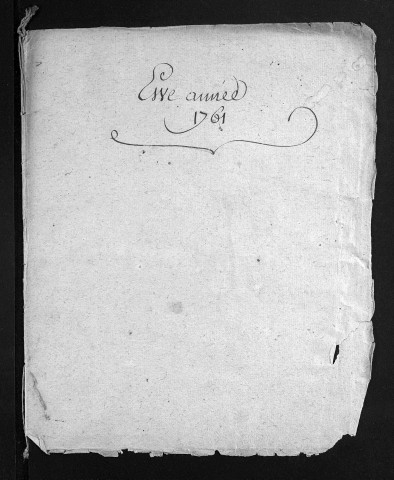 Esve année
1761